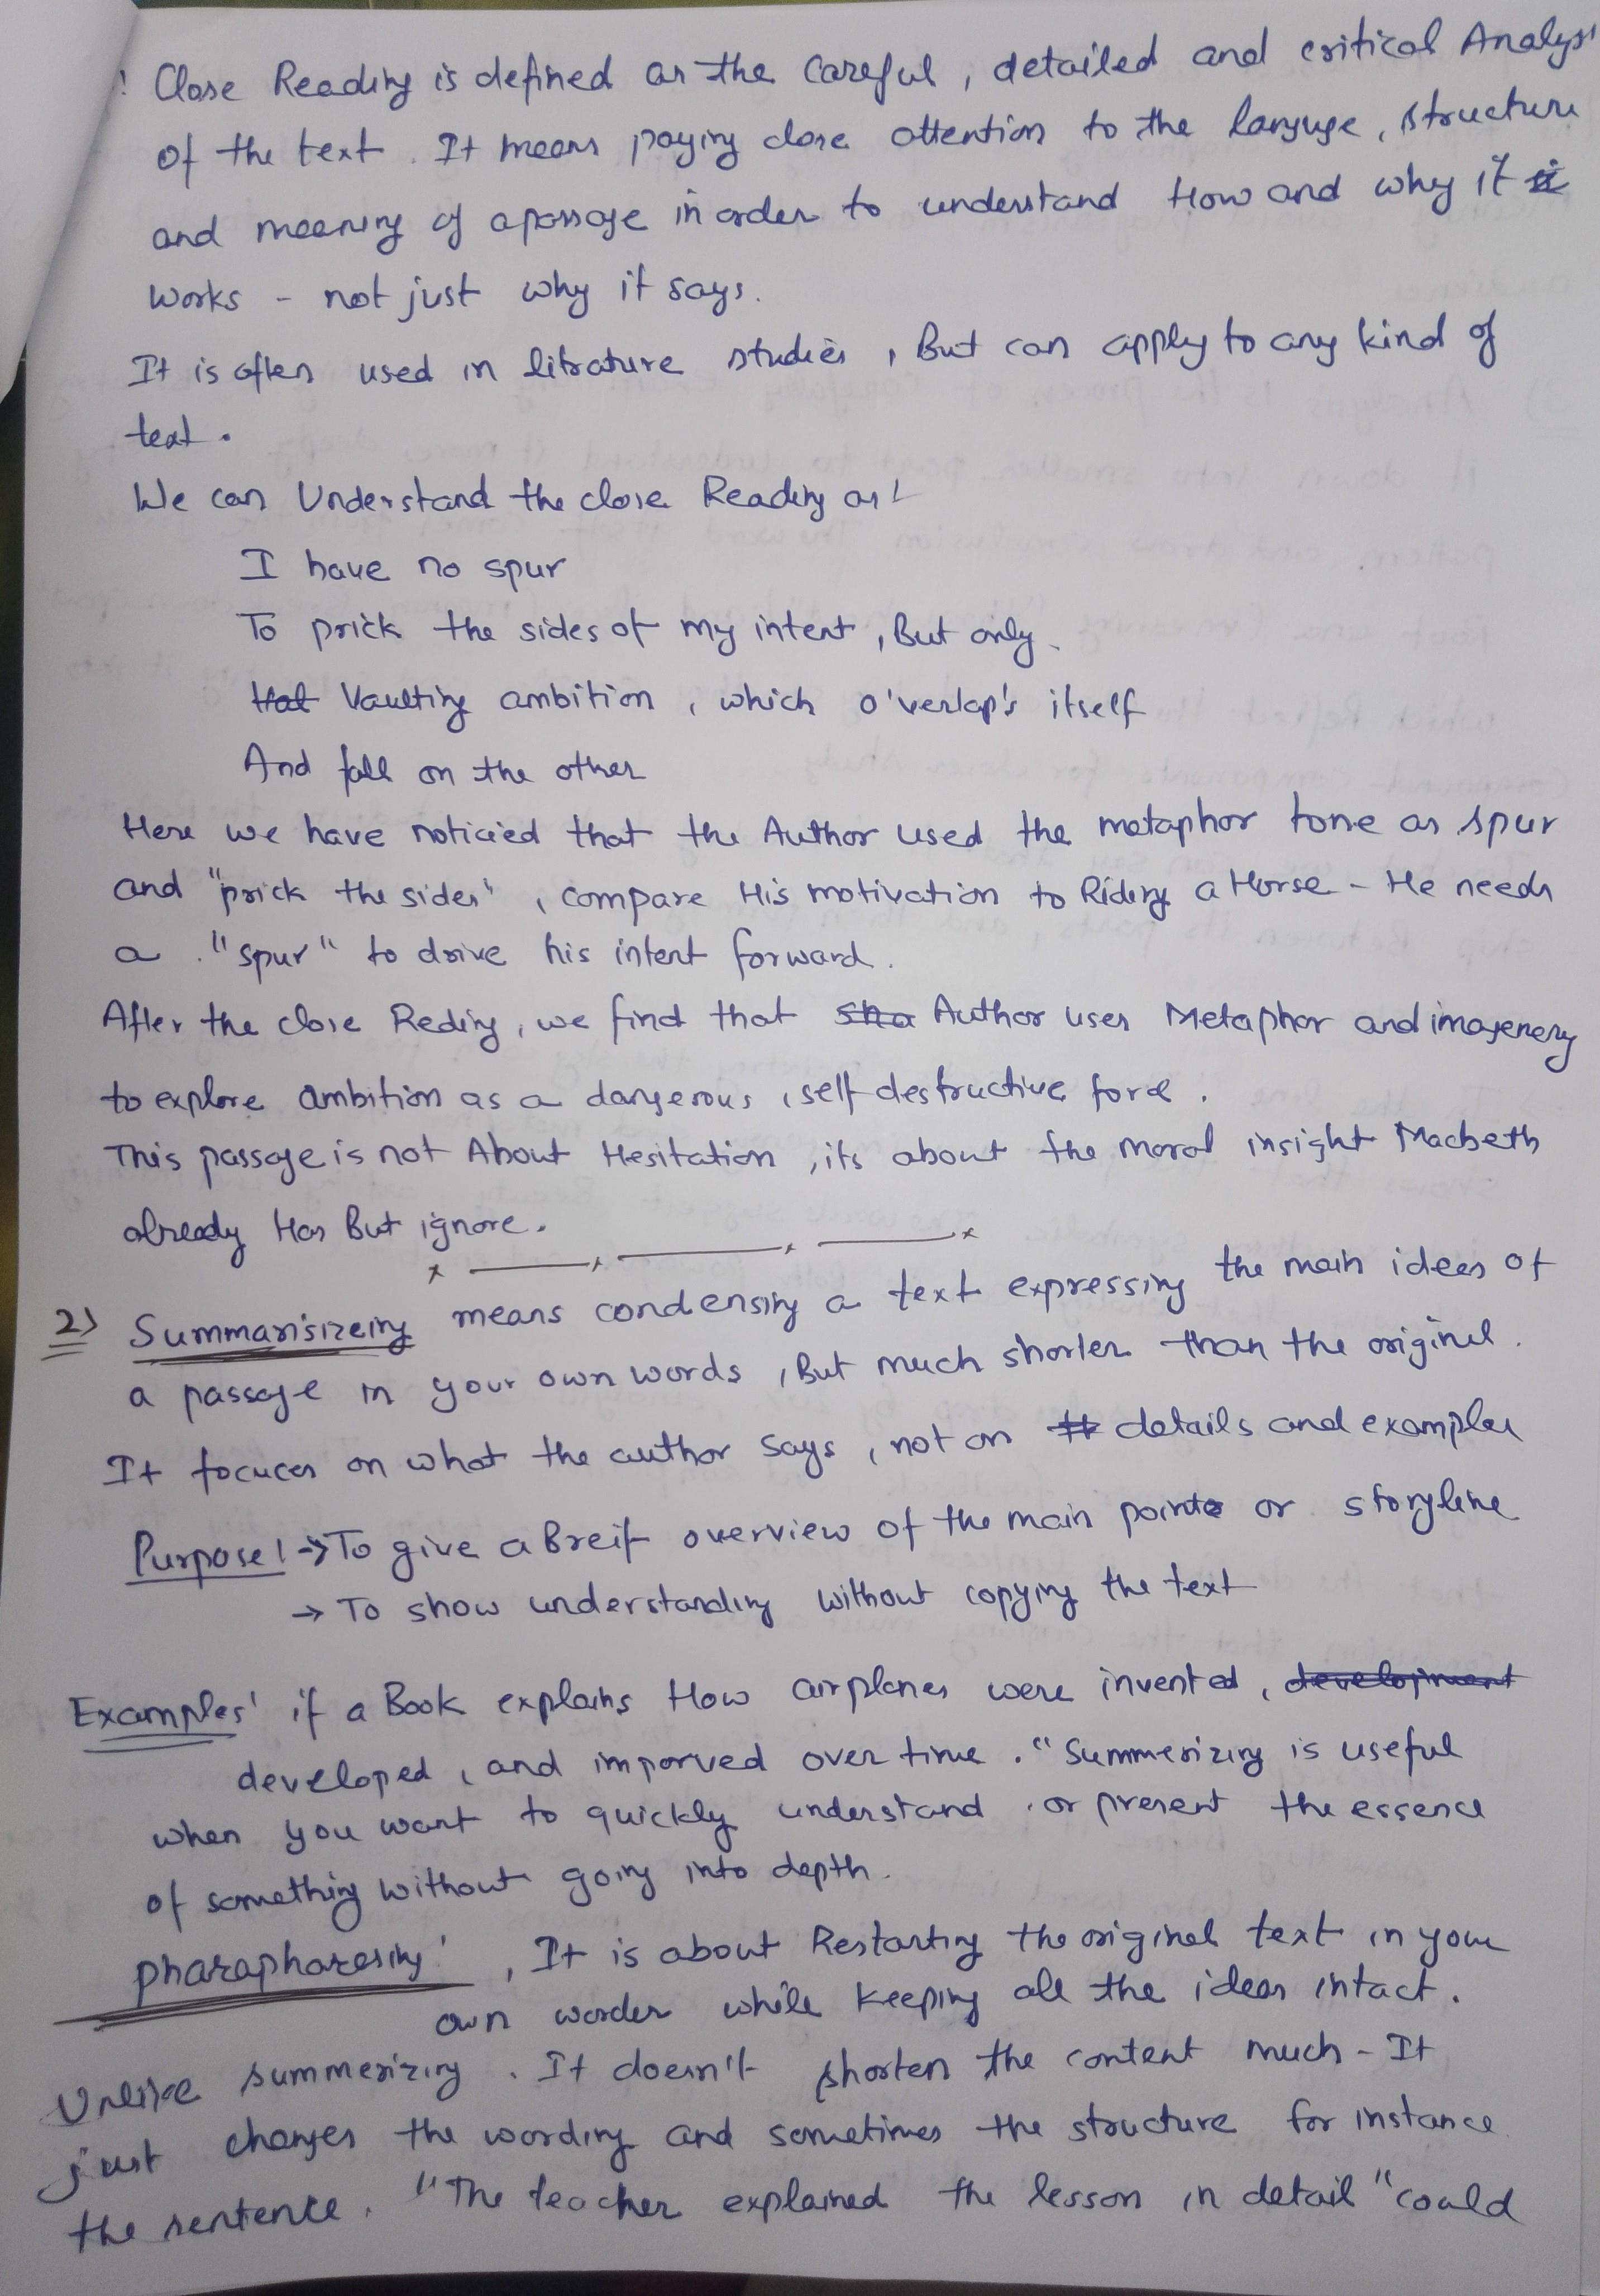 : Close Reading is defined as the Careful, detailed and critical Analys
of the text. It means paying close attention to the languge, structure
and meaning of a passage in order to understand How and why it
works - not just why it says.
It is often used in litrature studies, But can apply to any kind of
text.
We can Understand the close Reading as :
I have no spur
To prick the sides of my intent, But only
Vaulting ambition, which o'verlap's itself
And fall on the other
Here we have noticied that the Author used the metaphor tone as spur
and "prick the sides", compare His motivation to Riding a Horse - He needs
a "spur" to drive his intent forward.
After the close Reding, we find that Author uses Metaphor and imagenery
to explore ambition as a dangerous, self destructive force.
This passage is not About Hesitation, its about the moral insight Macbeth
already Has But ignore.
2) Summarisizeing means condensing a text expressing the main ideas of
a passage in your own words, But much shorter than the original.
It focuces on what the author says, not on details and examples
Purpose! → To give a Breif overview of the main points or storyline
→ To show understanding without copying the text
Examples' if a Book explains How airplanes were invented, development
developed, and imporved over time. "Summerizing is useful
when you want to quickly understand, or present the essence
of something without going into depth.
pharapharesing!, It is about Restarting the original text in your
own wordes while keeping all the ideas intact.
Unlike summerizing. It doesn't shorten the content much - It
just changes the wording and sometimes the structure for instance
the sentence. "The teacher explained the lesson in detail" could